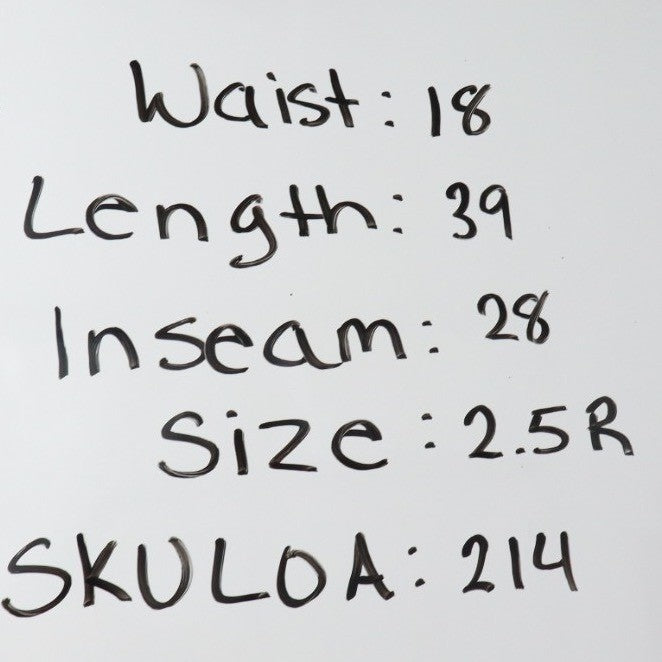 Waist: 18
Length: 39
Inseam: 28
Size: 2.5R
SKULOA: 214